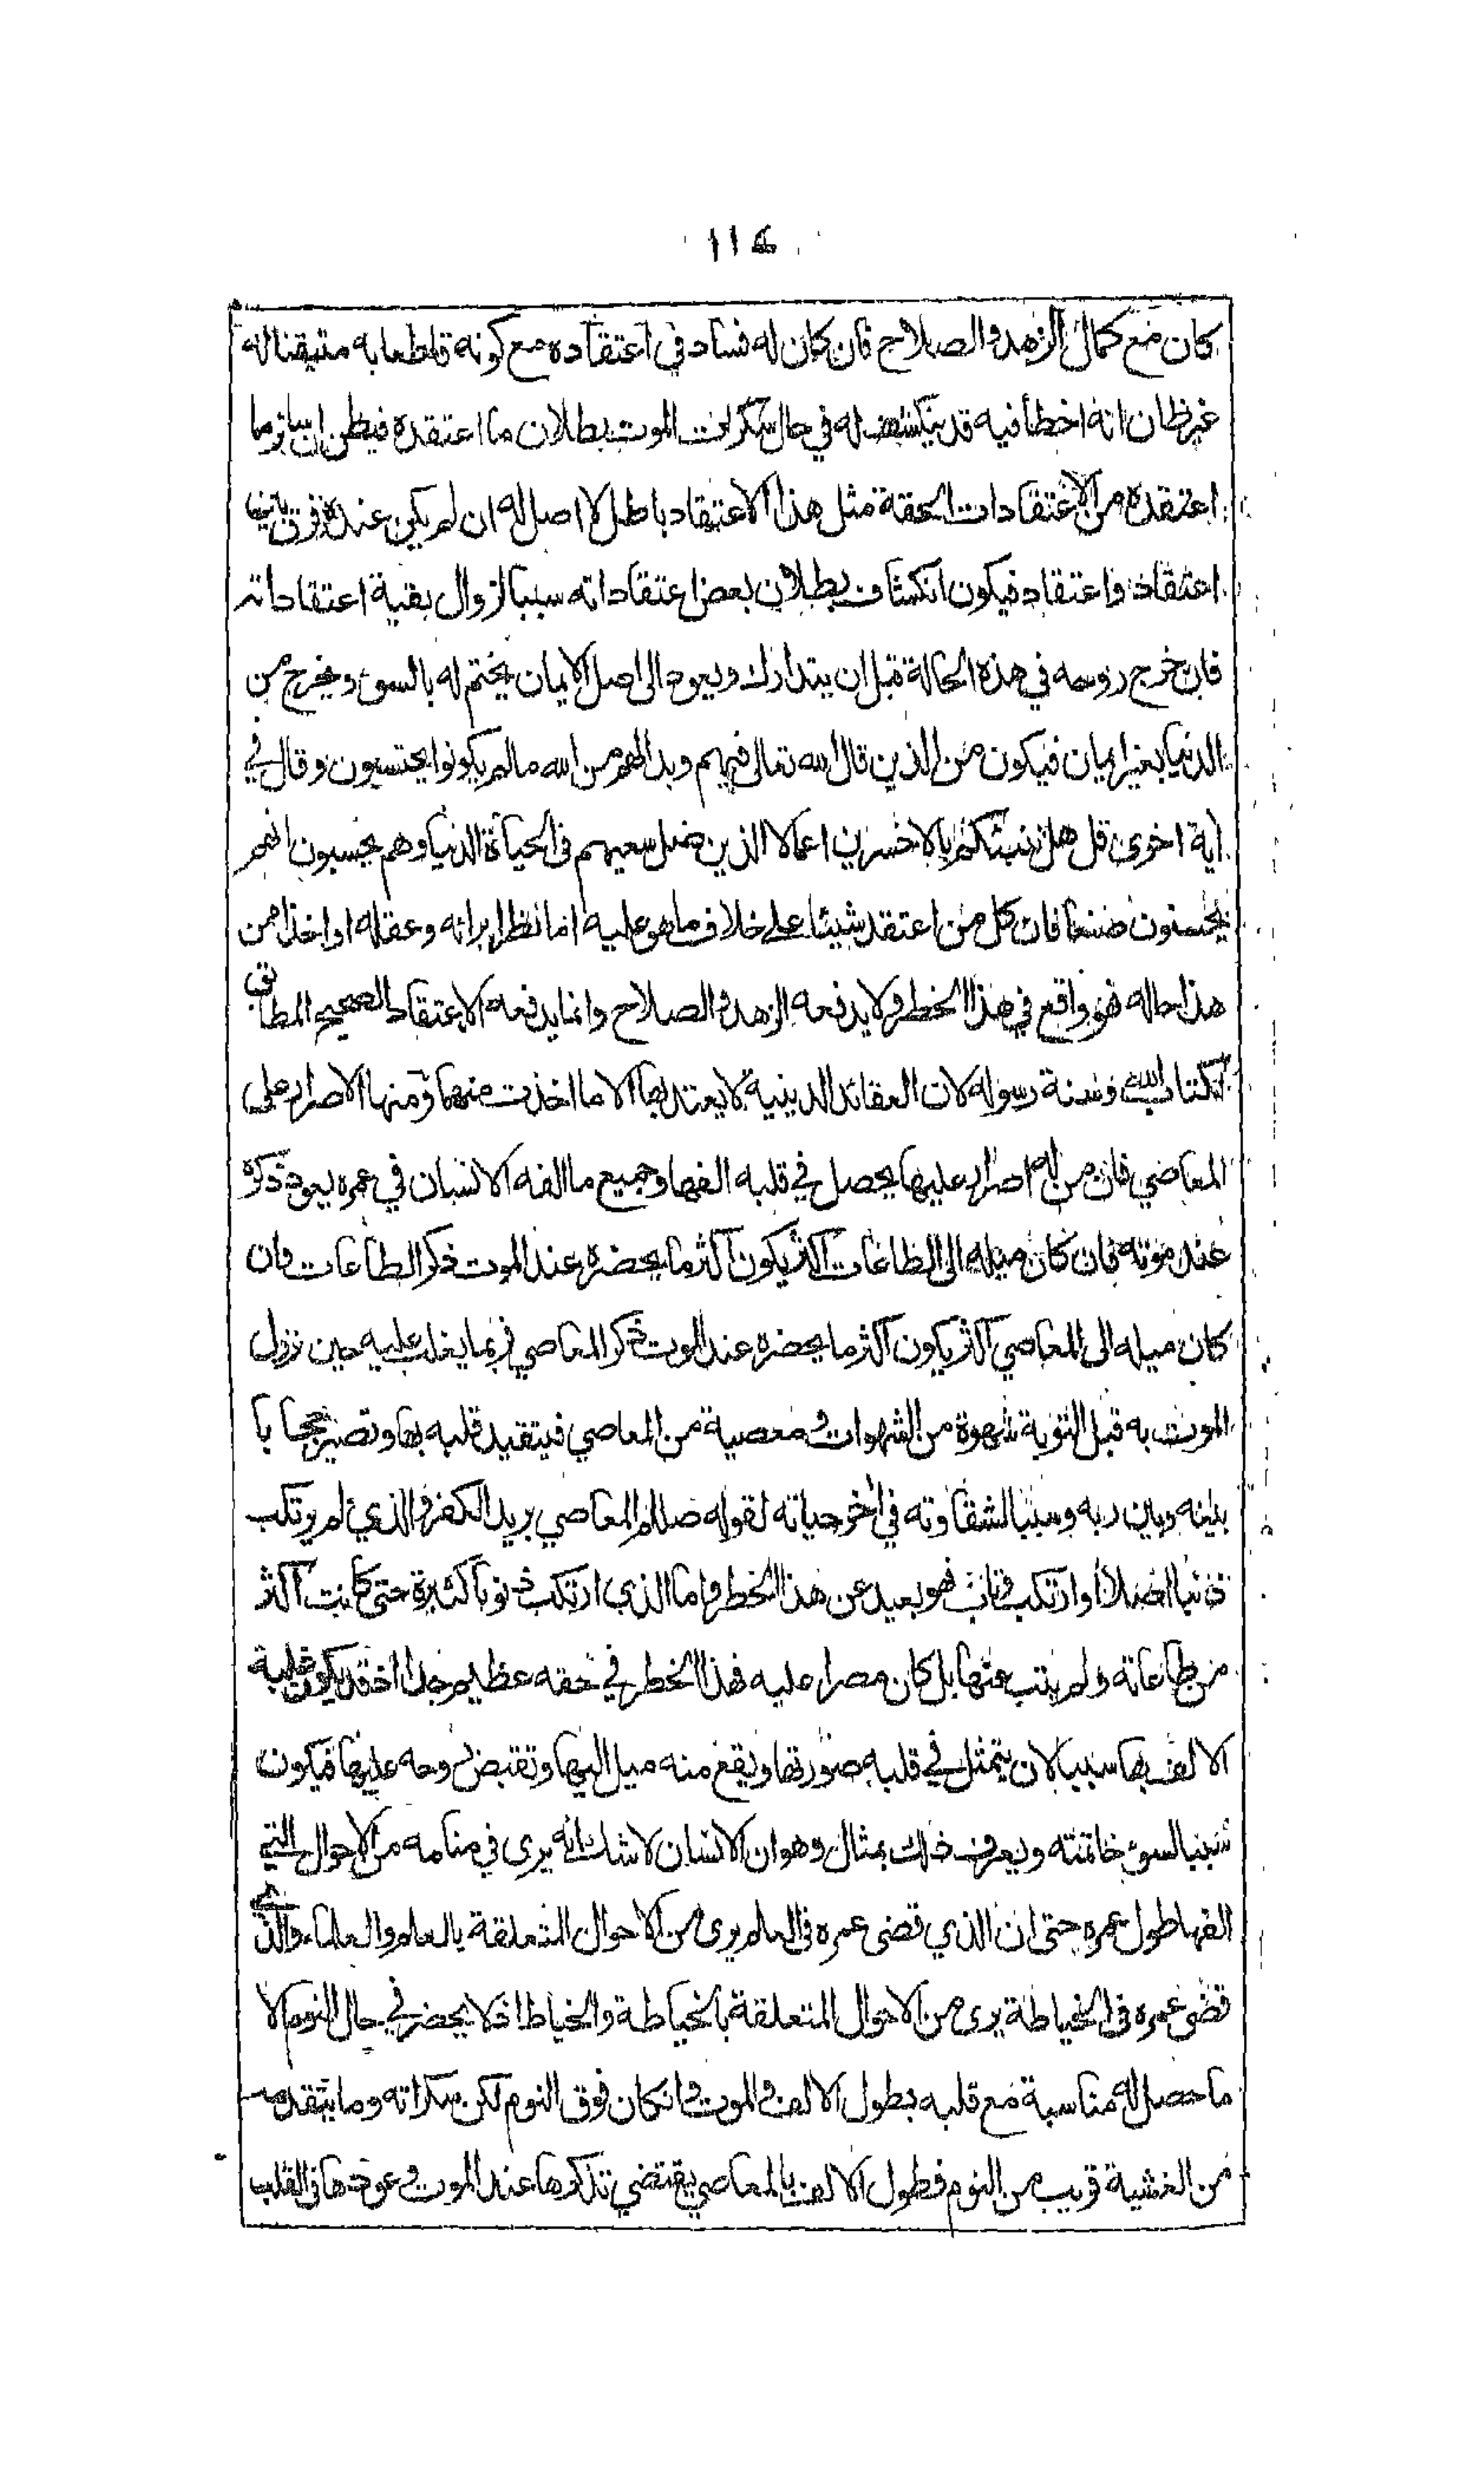 ١١٤
كان مع كمال الزهد والصلاح فان كان له فساد في اعتقاده مع كونه قاطعا به متيقنا له
غير ظان انه اخطأ فيه قد ينكشف له في حال سكرات الموت بطلان ما اعتقده فيظن ان سائر ما
اعتقده من الاعتقادات الحقة مثل هذا الاعتقاد باطل لا اصل له ان لم يكن عنده فرق بين
اعتقاد واعتقاد فيكون انكشاف بطلان بعض اعتقاداته سببا لزوال بقية اعتقاداته
فان خرج روحه في هذه الحالة قبل ان يتدارك ويعود الى اصل الايمان يختم له بالسوء ويخرج من
الدنيا بغير ايمان فيكون من الذين قال الله تعالى فيهم وبدا لهم من الله ما لم يكونوا يحتسبون وقال في
اية اخرى قل هل ننبئكم بالاخسرين اعمالا الذين ضل سعيهم في الحياة الدنيا وهم يحسبون انهم
يحسنون صنعا فان كل من اعتقد شيئا على خلاف ما هو عليه اما نظرا برائه وعقله او اخذا من
هذا حاله فهو واقع في هذا الخطر ولا يدفعه الزهد والصلاح وانما يدفعه الاعتقاد الصحيح المطابق
لكتاب الله وسنة رسوله لان العقائد الدينية لا يعتد بها الا ما اخذت منهما ومنها الاصرار على
المعاصي فان من له اصرار عليها يحصل في قلبه الفها وجميع ما الفه الانسان في عمره يعود ذكره
عند موته فان كان ميله الى الطاعات اكثر يكون اكثر ما يحضره عند الموت ذكر الطاعات وان
كان ميله الى المعاصي اكثر يكون اكثر ما يحضره عند الموت ذكر المعاصي فربما يغلب عليه حين نزول
الموت به قبل التوبة شهوة من الشهوات ومعصية من المعاصي فيتقيد قلبه بها وتصير حجابا
بينه وبين ربه وسببا لشقاوته في اخر حياته لقوله صللم المعاصي بريد الكفر والذي لم يرتكب
ذنبا اصلا او ارتكب وتاب فهو بعيد عن هذا الخطر واما الذي ارتكب ذنوبا كثيرة حتى كانت اكثر
من طاعاته ولم يتب عنها بل كان مصرا عليه فهذا الخطر في حقه عظيم جدا اذ قد يكون غلبة
الالف بها سببا لان يتمثل في قلبه صورتها ويقع منه ميل اليها وتقبض روحه عليها فيكون
سببا لسوء خاتمته ويعرف ذلك بمثال وهو ان الانسان لا شك انه يرى في منامه من الاحوال التي
الفها طول عمره حتى ان الذي قضى عمره في العلم يرى من الاحوال المتعلقة بالعلم والعلماء والذي
قضى عمره في الخياطة يرى من الاحوال المتعلقة بالخياطة والخياط اذ لا يحضر في حال النوم الا
ما حصل له مناسبة مع قلبه بطول الالف والموت وان كان فوق النوم لكن سكراته وما يتقدمه
من الغشية قريب من النوم فطول الالف بالمعاصي يقتضي تذكرها عند الموت وعودها في القلب